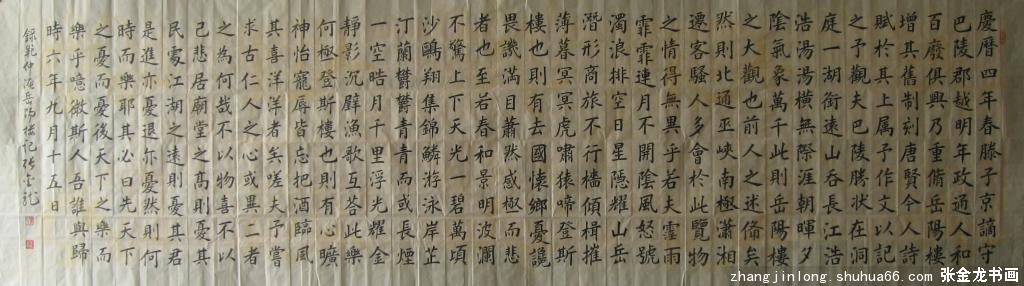 慶曆四年春滕子京謫守
巴陵郡越明年政通人和
百廢俱興乃重脩岳陽樓
增其舊制刻唐賢今人詩
賦於其上属予作文以記
之予觀夫巴陵勝狀在洞
庭一湖銜遠山吞長江浩
浩湯湯橫無際涯朝暉夕
陰氣象萬千此則岳陽樓
之大觀也前人之述俻矣
然則北通巫峽南極瀟湘
遷客騷人多會於此覽物
之情得無異乎若夫霪雨
霏霏連月不開陰風怒號
濁浪排空日星隱耀山岳
潛形商旅不行檣傾楫摧
薄暮冥冥虎嘯猿啼登斯
樓也則有去國懷鄉憂讒
畏譏滿目蕭然感極而悲
者也至若春和景明波瀾
不驚上下天光一碧萬頃
沙鷗翔集錦鱗游泳岸芷
汀蘭鬱鬱青青而或長煙
一空皓月千里浮光耀金
靜影沉璧漁歌互荅此樂
何極登斯樓也則有心曠
神怡寵辱皆忘把酒臨風
其喜洋洋者矣嗟夫予嘗
求古仁人之心或異二者
之為何哉不以物喜不以
己悲居廟堂之高則憂其
民處江湖之遠則憂其君
是進亦憂退亦憂然則何
時而樂耶其必曰先天下
之憂而憂後天下之樂而
樂乎噫微斯人吾誰與歸
時六年九月十五日
錄范仲淹岳陽樓記張金龍
zhangjinlong.shuhua66.com 张金龙书画